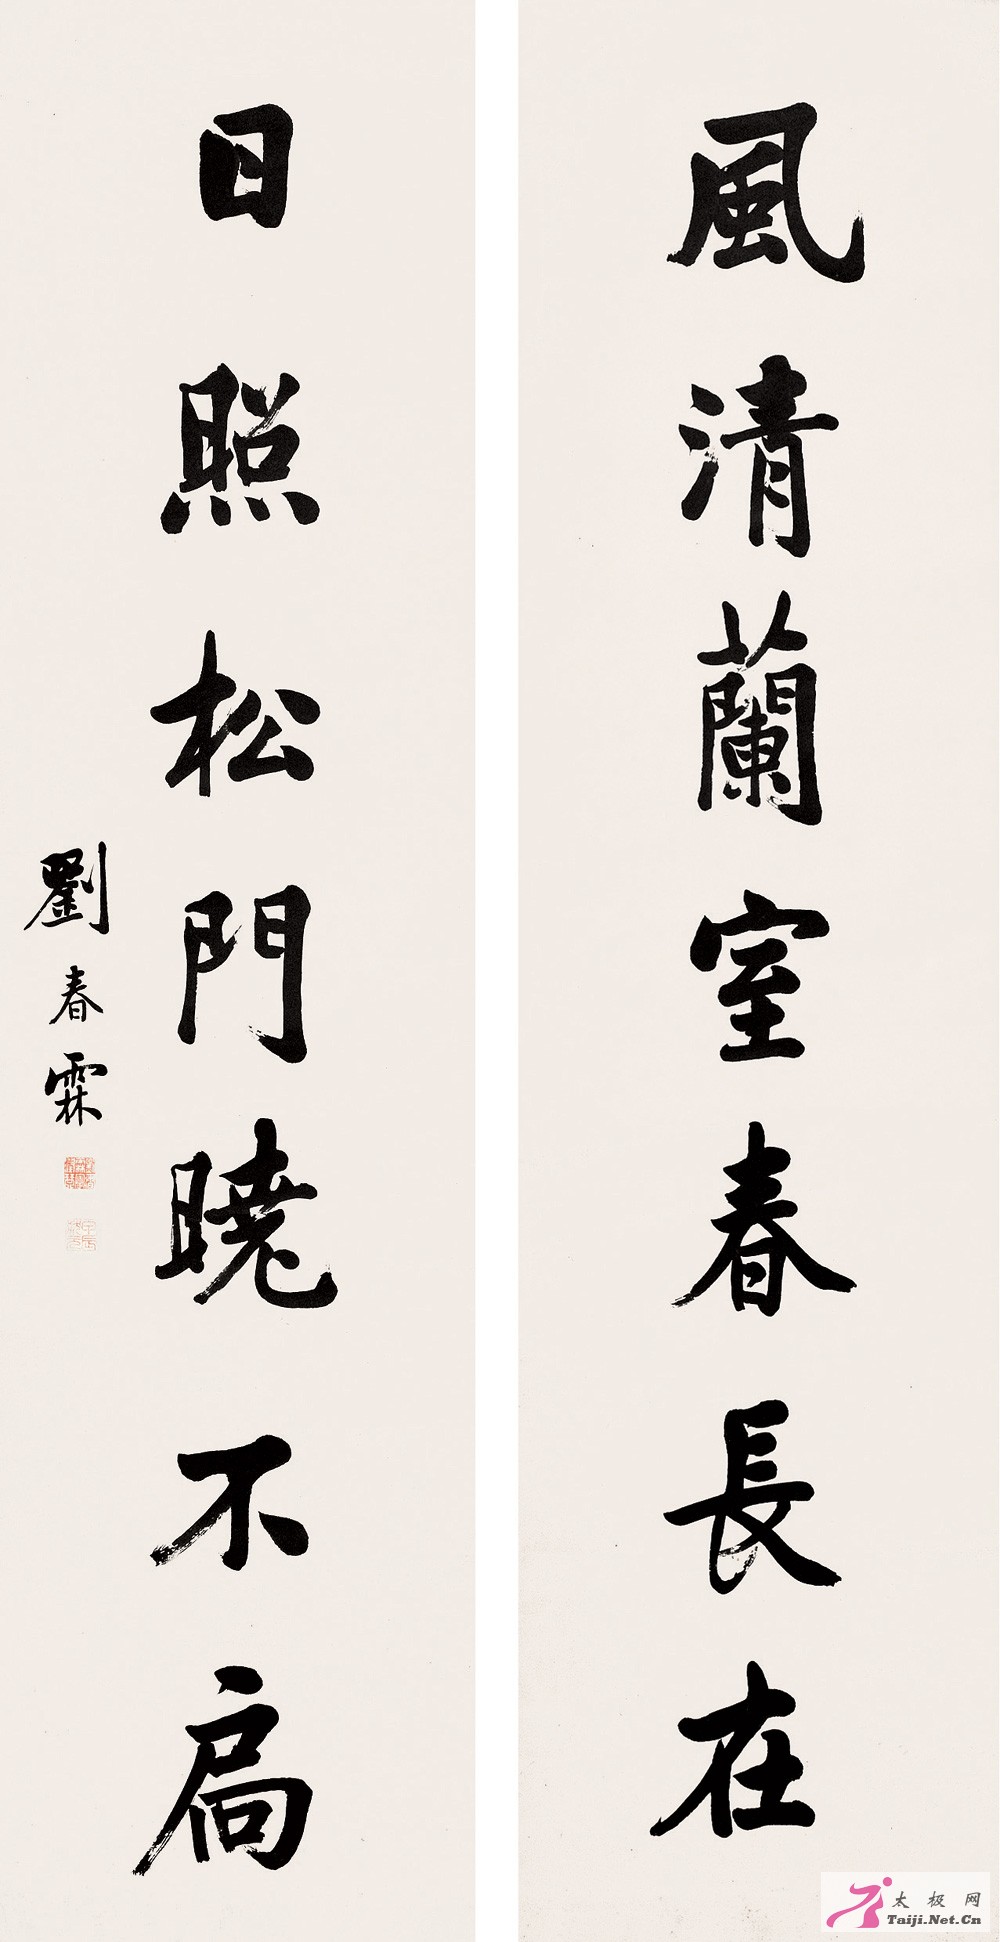 風清蘭室春長在
日照松門曉不扃
劉春霖
太极网
Taiji.Net.Cn